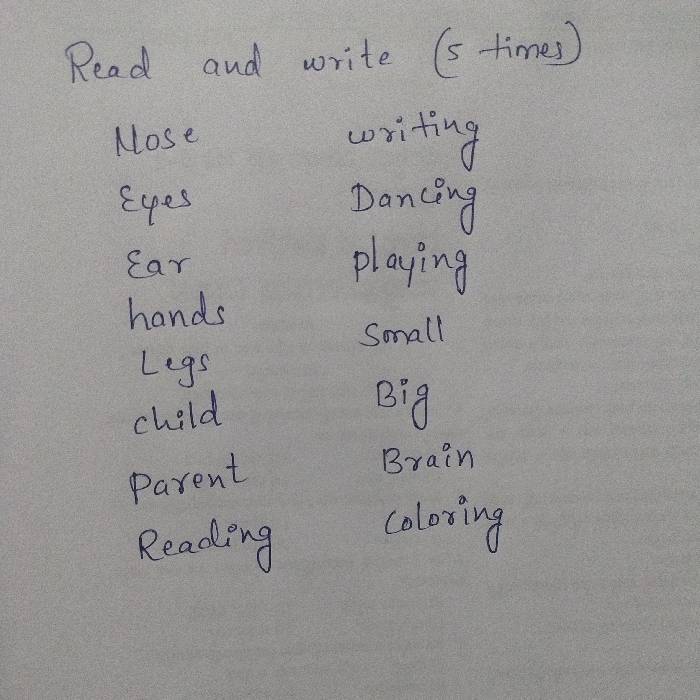 Read and write (5 times)
Nose
Eyes
Ear
hands
Legs
child
Parent
Reading
writing
Dancing
playing
Small
Big
Brain
Coloring